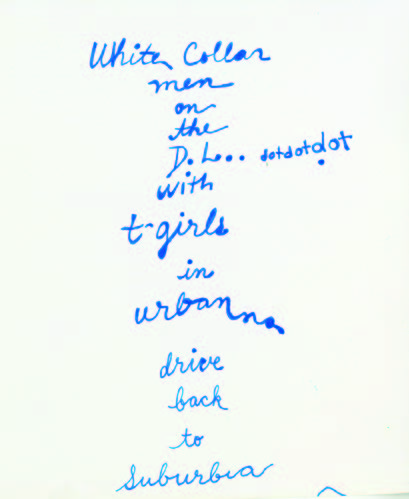 White Collar
men
on
the
D.L.. dotdotdot
with
t-girls
in
urbanna
drive
back
to
Suburbia